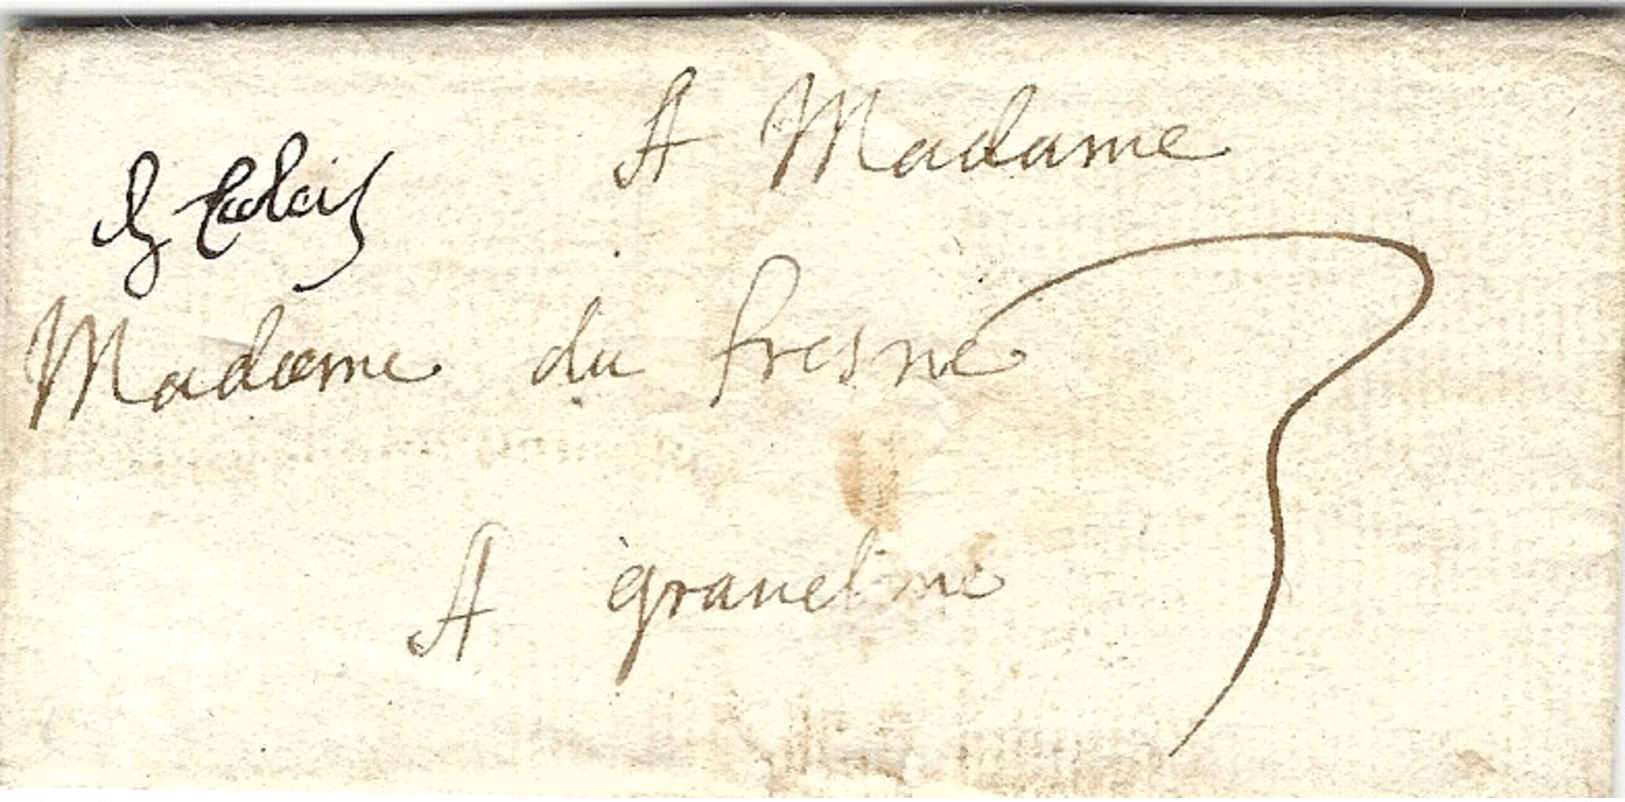 A Madame
de Calais
Madame du fresne
3
A graueline